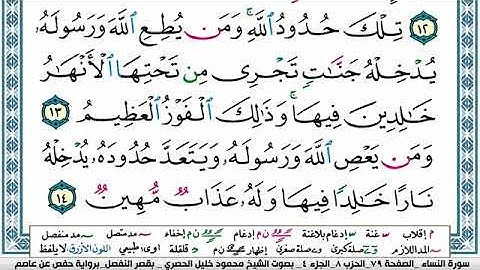 ١٢ تِلْكَ حُدُودُ اللَّهِ ۚ وَمَن يُطِعِ اللَّهَ وَرَسُولَهُۥ
يُدْخِلْهُ جَنَّاتٍ تَجْرِى مِن تَحْتِهَا الْأَنْهَارُ
خَالِدِينَ فِيهَا ۚ وَذَٰلِكَ الْفَوْزُ الْعَظِيمُ ١٣
وَمَن يَعْصِ اللَّهَ وَرَسُولَهُۥ وَيَتَعَدَّ حُدُودَهُۥ يُدْخِلْهُ
نَارًا خَالِدًا فِيهَا وَلَهُۥ عَذَابٌ مُّهِينٌ ١٤
م إقلاب س غنة س إدغام بلاغنة ن م إدغام ن م إخفاء مد متصل مد منفصل
مد اللازم صلة كبرى وے صلة صغرى إظهار ن م قلقلة اوى، طبيعي اللون الأزرق لا يلفظ
سورة النساء _ الصفحة ٧٩ _ الحزب ٨ _ الجزء ٤ _ بصوت الشيخ محمود خليل الحصري _ بقصر المنفصل _ برواية حفص عن عاصم